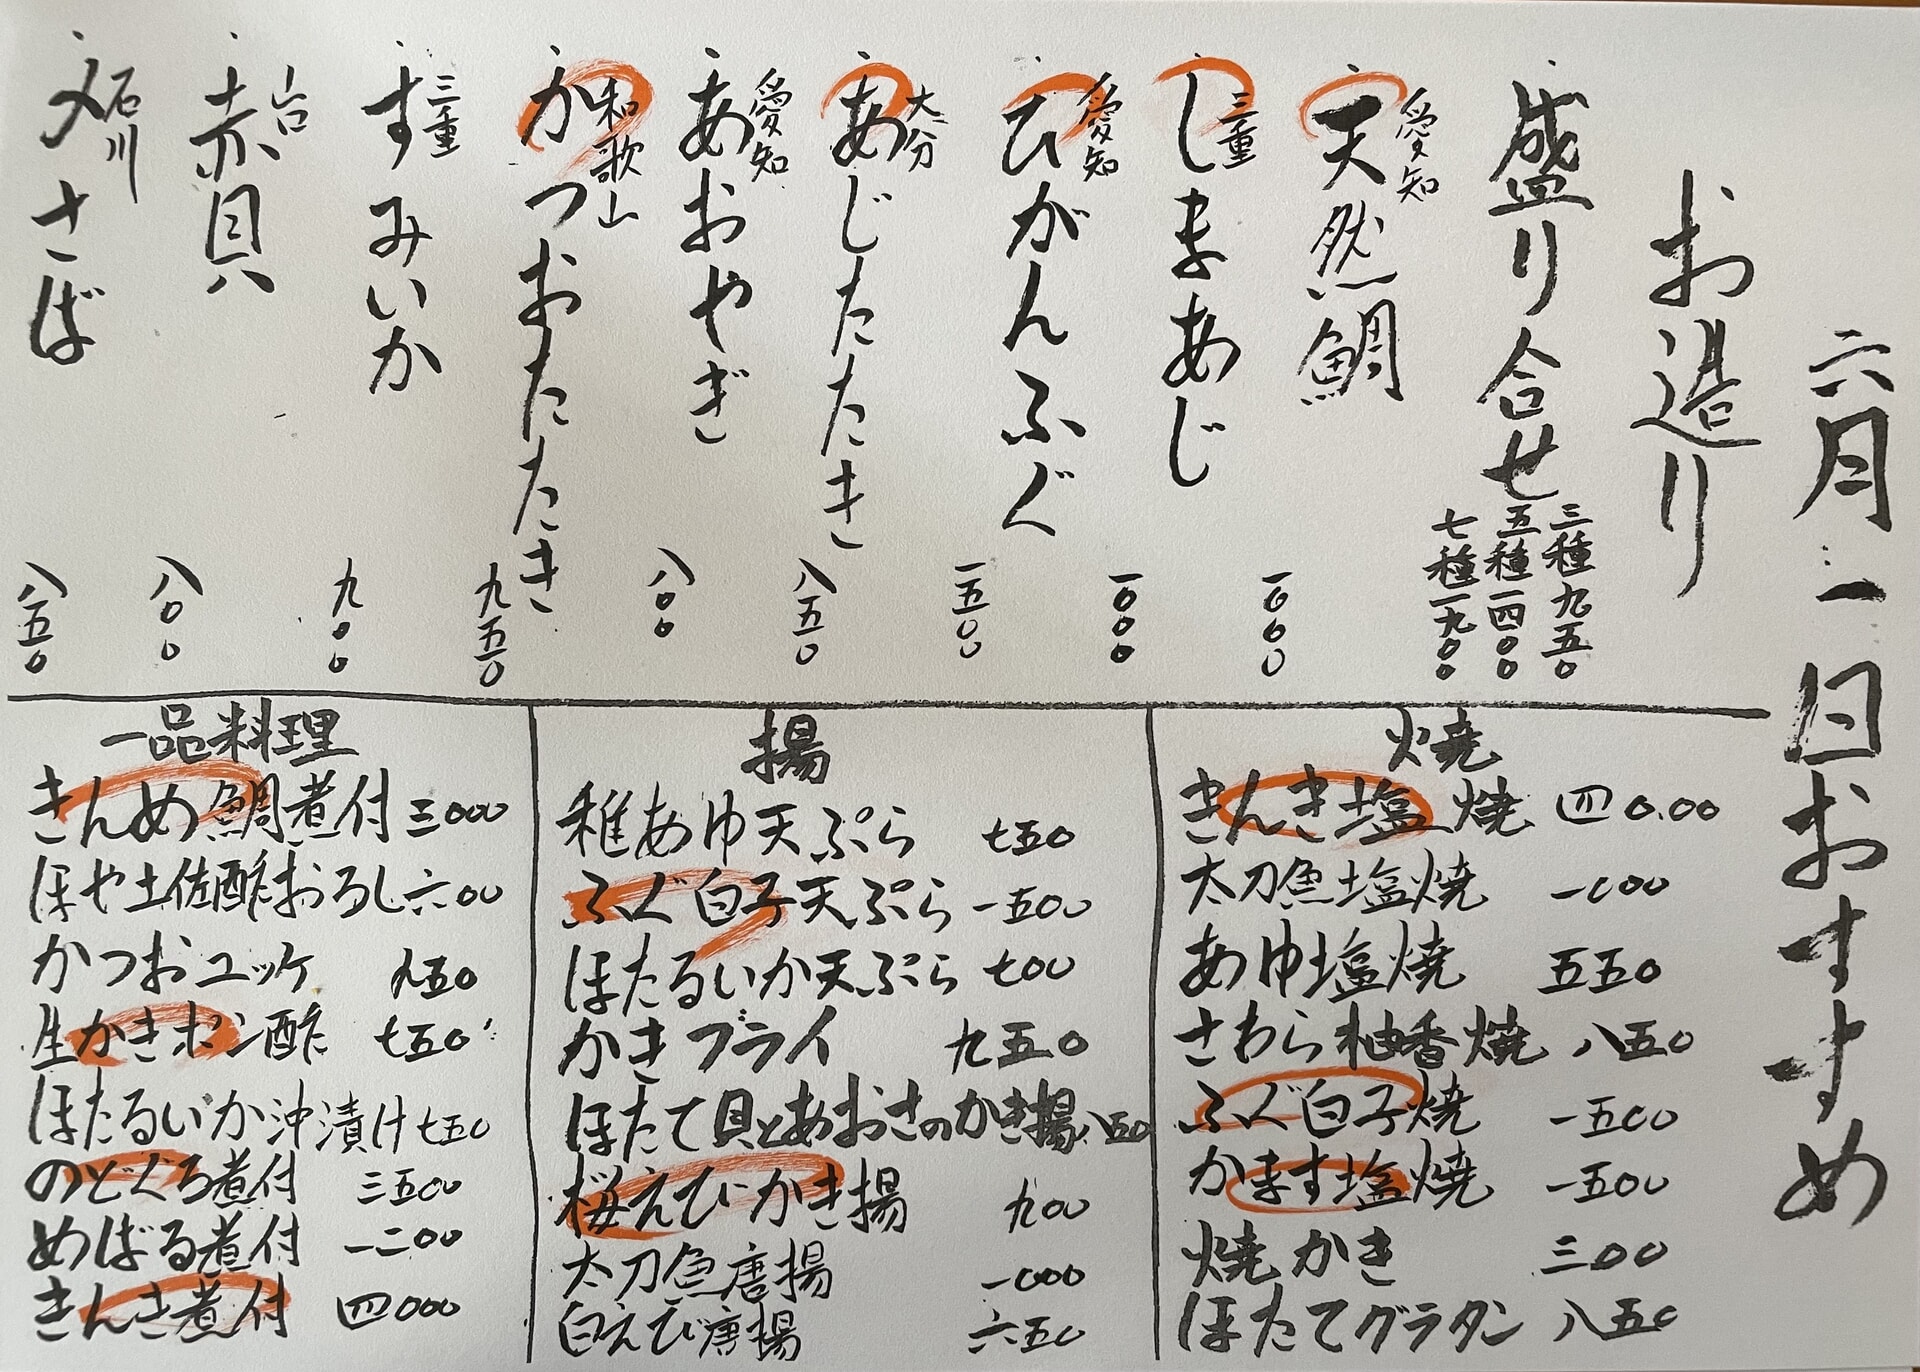 六月一日おすすめ
お造り
盛り合せ
三種九五〇
五種一四〇〇
七種一九〇〇
愛知
天然鯛 一〇〇〇
三重
しまあじ 一〇〇〇
愛知
ひがんふぐ 一五〇〇
大分
あじたたき 八五〇
愛知
あおやぎ 八〇〇
和歌山
かつおたたき 九五〇
三重
すみいか 九〇〇
赤貝 八〇〇
石川
〆さば 八五〇
焼
きんき塩焼 四〇.〇〇
太刀魚塩焼 一〇〇〇
あゆ塩焼 五五〇
さわら柚香焼 八五〇
ふぐ白子焼 一五〇〇
かます塩焼 一五〇〇
焼かき 三〇〇
ほたてグラタン 八五〇
揚
稚あゆ天ぷら 七五〇
ふぐ白子天ぷら 一五〇〇
ほたるいか天ぷら 七〇〇
かきフライ 九五〇
ほたて貝とあおさのかき揚 八五〇
桜えびかき揚 九〇〇
太刀魚唐揚 一〇〇〇
白えび唐揚 六五〇
一品料理
きんめ鯛煮付 三〇〇〇
ほや土佐酢おろし 六〇〇
かつおユッケ 九五〇
生かきポン酢 七五〇
ほたるいか沖漬け 七五〇
のどぐろ煮付 三五〇〇
めばる煮付 一二〇〇
きんき煮付 四〇〇〇